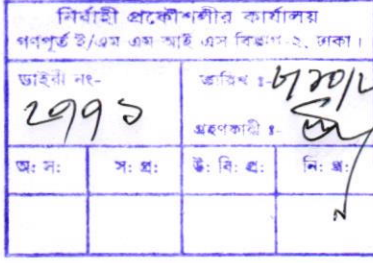 নির্বাহী প্রকৌশলীর কার্যালয়
গণপূর্ত ই/এম এম আই এস বিভাগ-২, ঢাকা।
ডাইরী নং-
২৭৭১
তারিখ ঃ-
গ্রহণকারী ঃ-
অ: স: স: প্র: উ: বি: প্র: নি: প্র: